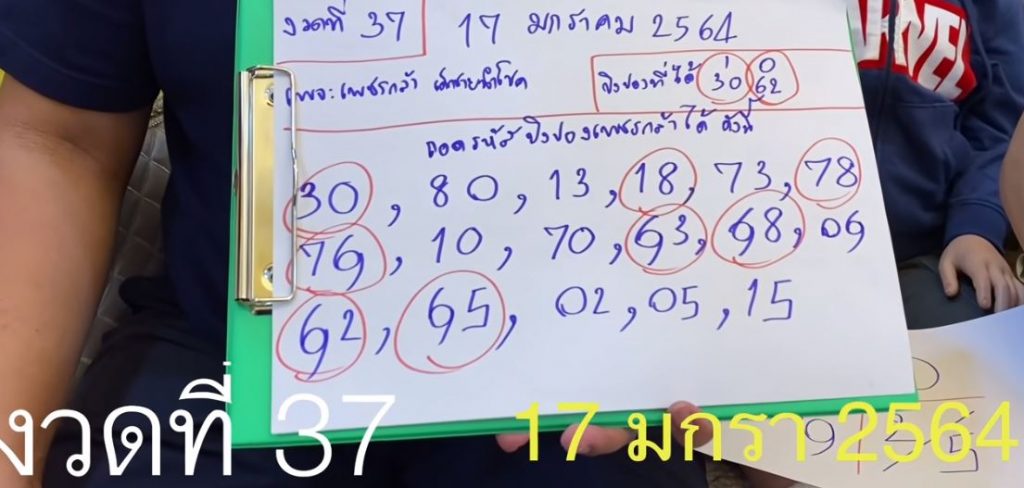 งวดที่ 37 17 มกราคม 2564
เพจ:เพชรกล้า
ปิงปองที่ได้ 1 30 0 62
ถอดรหัสปิงปองเพชรกล้าได้ ดังนี้
30, 80, 13, 18, 73, 78
76, 10, 70, 63, 68, 06
62, 65, 02, 05, 15
งวดที่ 37 17 มกรา 2564